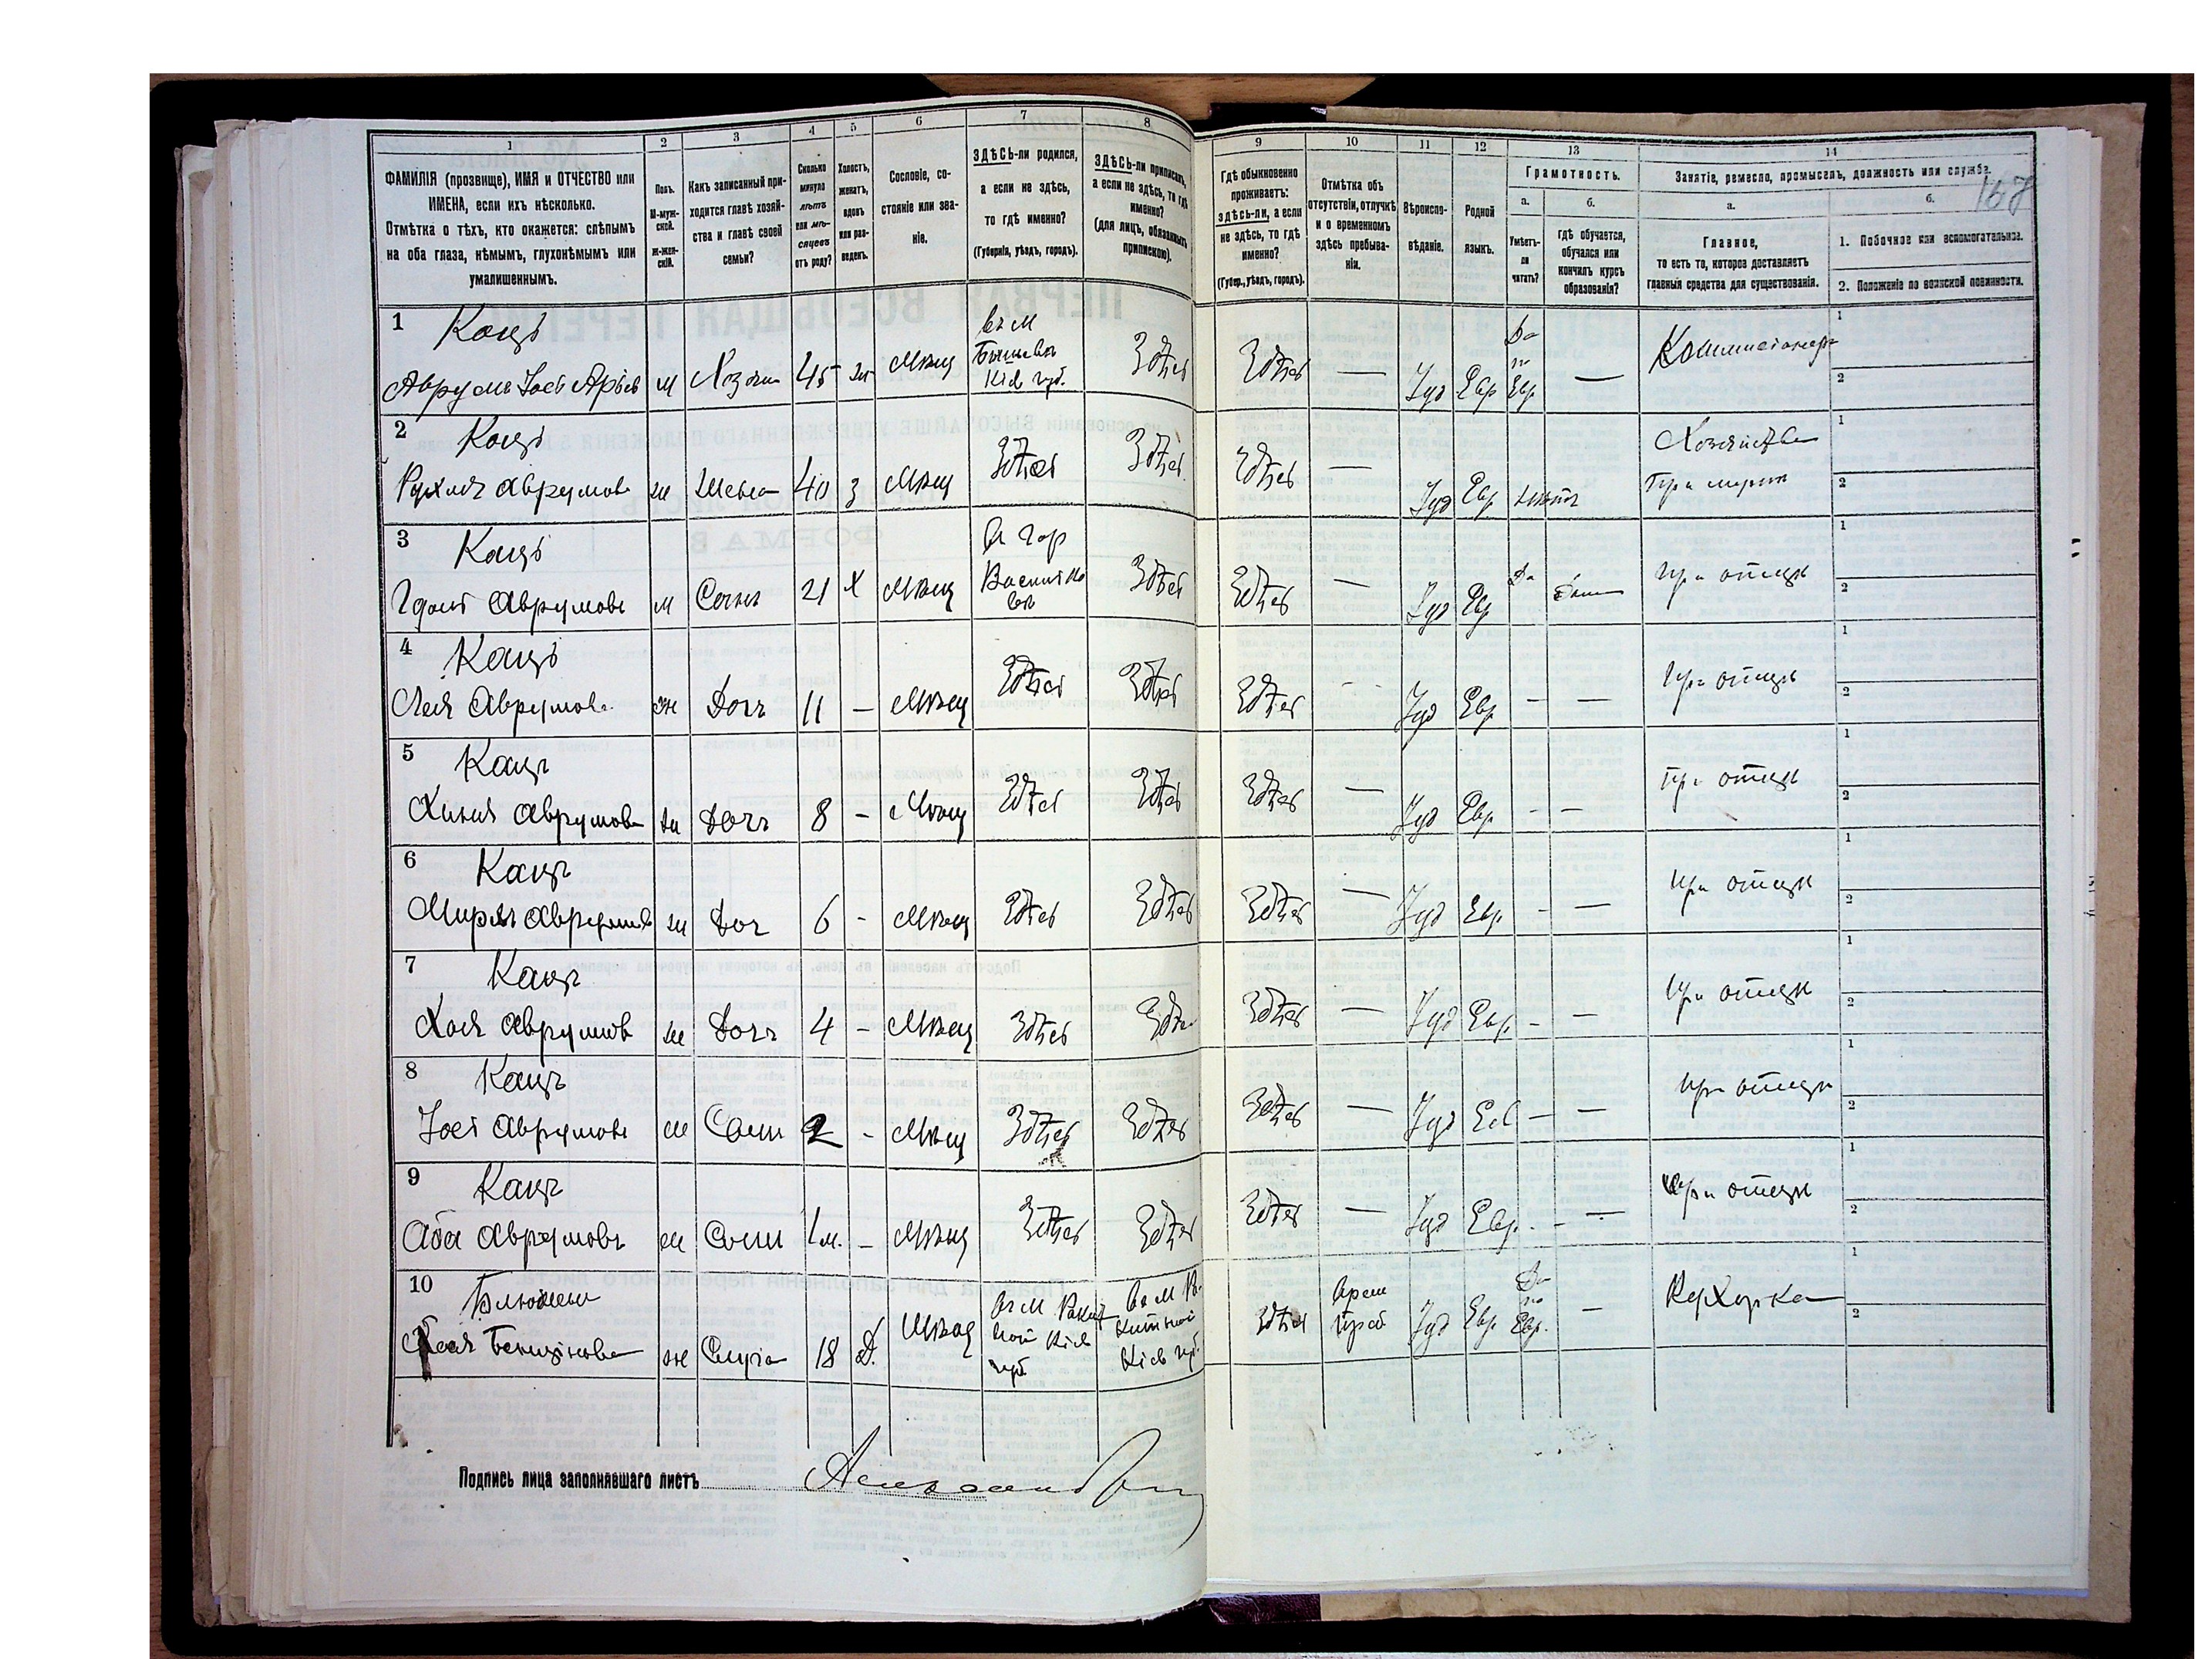 1 2 3 4 5 6 7 8 9 10 11 12 13 14
ФАМИЛІЯ (прозвище), ИМЯ и ОТЧЕСТВО или
ИМЕНА, если ихъ нѣсколько.
Отмѣтка о тѣхъ, кто окажется: слѣпымъ
на оба глаза, нѣмымъ, глухонѣмымъ или
умалишеннымъ.
Полъ.
М-муж-
ской.
Ж-жен-
скій.
Какъ записанный при-
ходится главѣ хозяй-
ства и главѣ своей
семьи?
Сколько
минуло
лѣтъ
или мѣ-
сяцевъ
отъ роду?
Холостъ,
женатъ,
вдовъ
или раз-
веденъ.
Сословіе, со-
стояніе или зва-
ніе.
ЗДѢСЬ-ли родился,
а если не здѣсь,
то гдѣ именно?
(Губернія, уѣздъ, городъ).
ЗДѢСЬ-ли приписанъ,
а если не здѣсь, то гдѣ
именно?
(для лицъ, обязанныхъ
припискою).
Гдѣ обыкновенно
проживаетъ:
здѣсь-ли, а если
не здѣсь, то гдѣ
именно?
(Губер., уѣздъ, городъ).
Отмѣтка объ
отсутствіи, отлучкѣ
и о временномъ
здѣсь пребыва-
ніи.
Вѣроиспо-
вѣданіе.
Родной
языкъ.
Грамотность.
а.
Умѣетъ-
ли
читать?
б.
Гдѣ обучается,
обучался или
кончилъ курсъ
образованія?
Занятіе, ремесло, промыселъ, должность или служба.
167
а.
Главное,
то есть то, которое доставляетъ
главныя средства для существованія.
б.
1. Побочное или вспомогательное.
2. Положеніе по воинской повинности.
1 Кацъ
Аврумъ Іось Арьев м Хозяин 45 ж Мѣщ
въ м
Кіев губ.
Здѣсь Здѣсь — Іуд Евр
Да
по
Евр
—
Коммисіонеръ
1
2
2 Кацъ
Рухля Аврумова ж Жена 40 з Мѣщ Здѣсь Здѣсь Здѣсь — Іуд Евр нѣтъ
Хозяйства
При мужѣ
1
2
3 Кацъ
Аврумовъ м Сынъ 21 х Мѣщ
въ гор
Василько
вѣ
Здѣсь Здѣсь — Іуд Ев Да При отцѣ
1
2
4 Кацъ
Лея Аврумова ж Дочь 11 — Мѣщ Здѣсь Здѣсь Здѣсь — Іуд Евр — — При отцѣ
1
2
5 Кацъ
Хиня Аврумова ж Дочь 8 — Мѣщ Здѣсь Здѣсь Здѣсь — Іуд Евр — — При отцѣ
1
2
6 Кацъ
Аврумов ж Доч 6 — Мѣщ Здѣсь Здѣсь Здѣсь — Іуд Евр. — — При отцѣ
1
2
7 Кацъ
Хая Аврумов ж Дочь 4 — Мѣщ Здѣсь Здѣсь Здѣсь — Іуд Евр. — — При отцѣ
1
2
8 Кацъ
Іось Аврумовъ м Сын 2 — Мѣщ Здѣсь Здѣсь Здѣсь — Іуд Ев — — При отцѣ
1
2
9 Кацъ
Аба Аврумовъ м Сын 1 м. — Мѣщ Здѣсь Здѣсь Здѣсь — Іуд Евр. — — При отцѣ
1
2
10
Бенціонова ж Слуга 18 Д. Мѣщ
въ м Ракит
ной Кіев
губ
въ м Ра
китной
Кіев губ.
Здѣсь
Врем
преб
Іуд Евр
Да
по
Евр.
—
Кухарка
1
2
Подпись лица заполнявшаго листъ